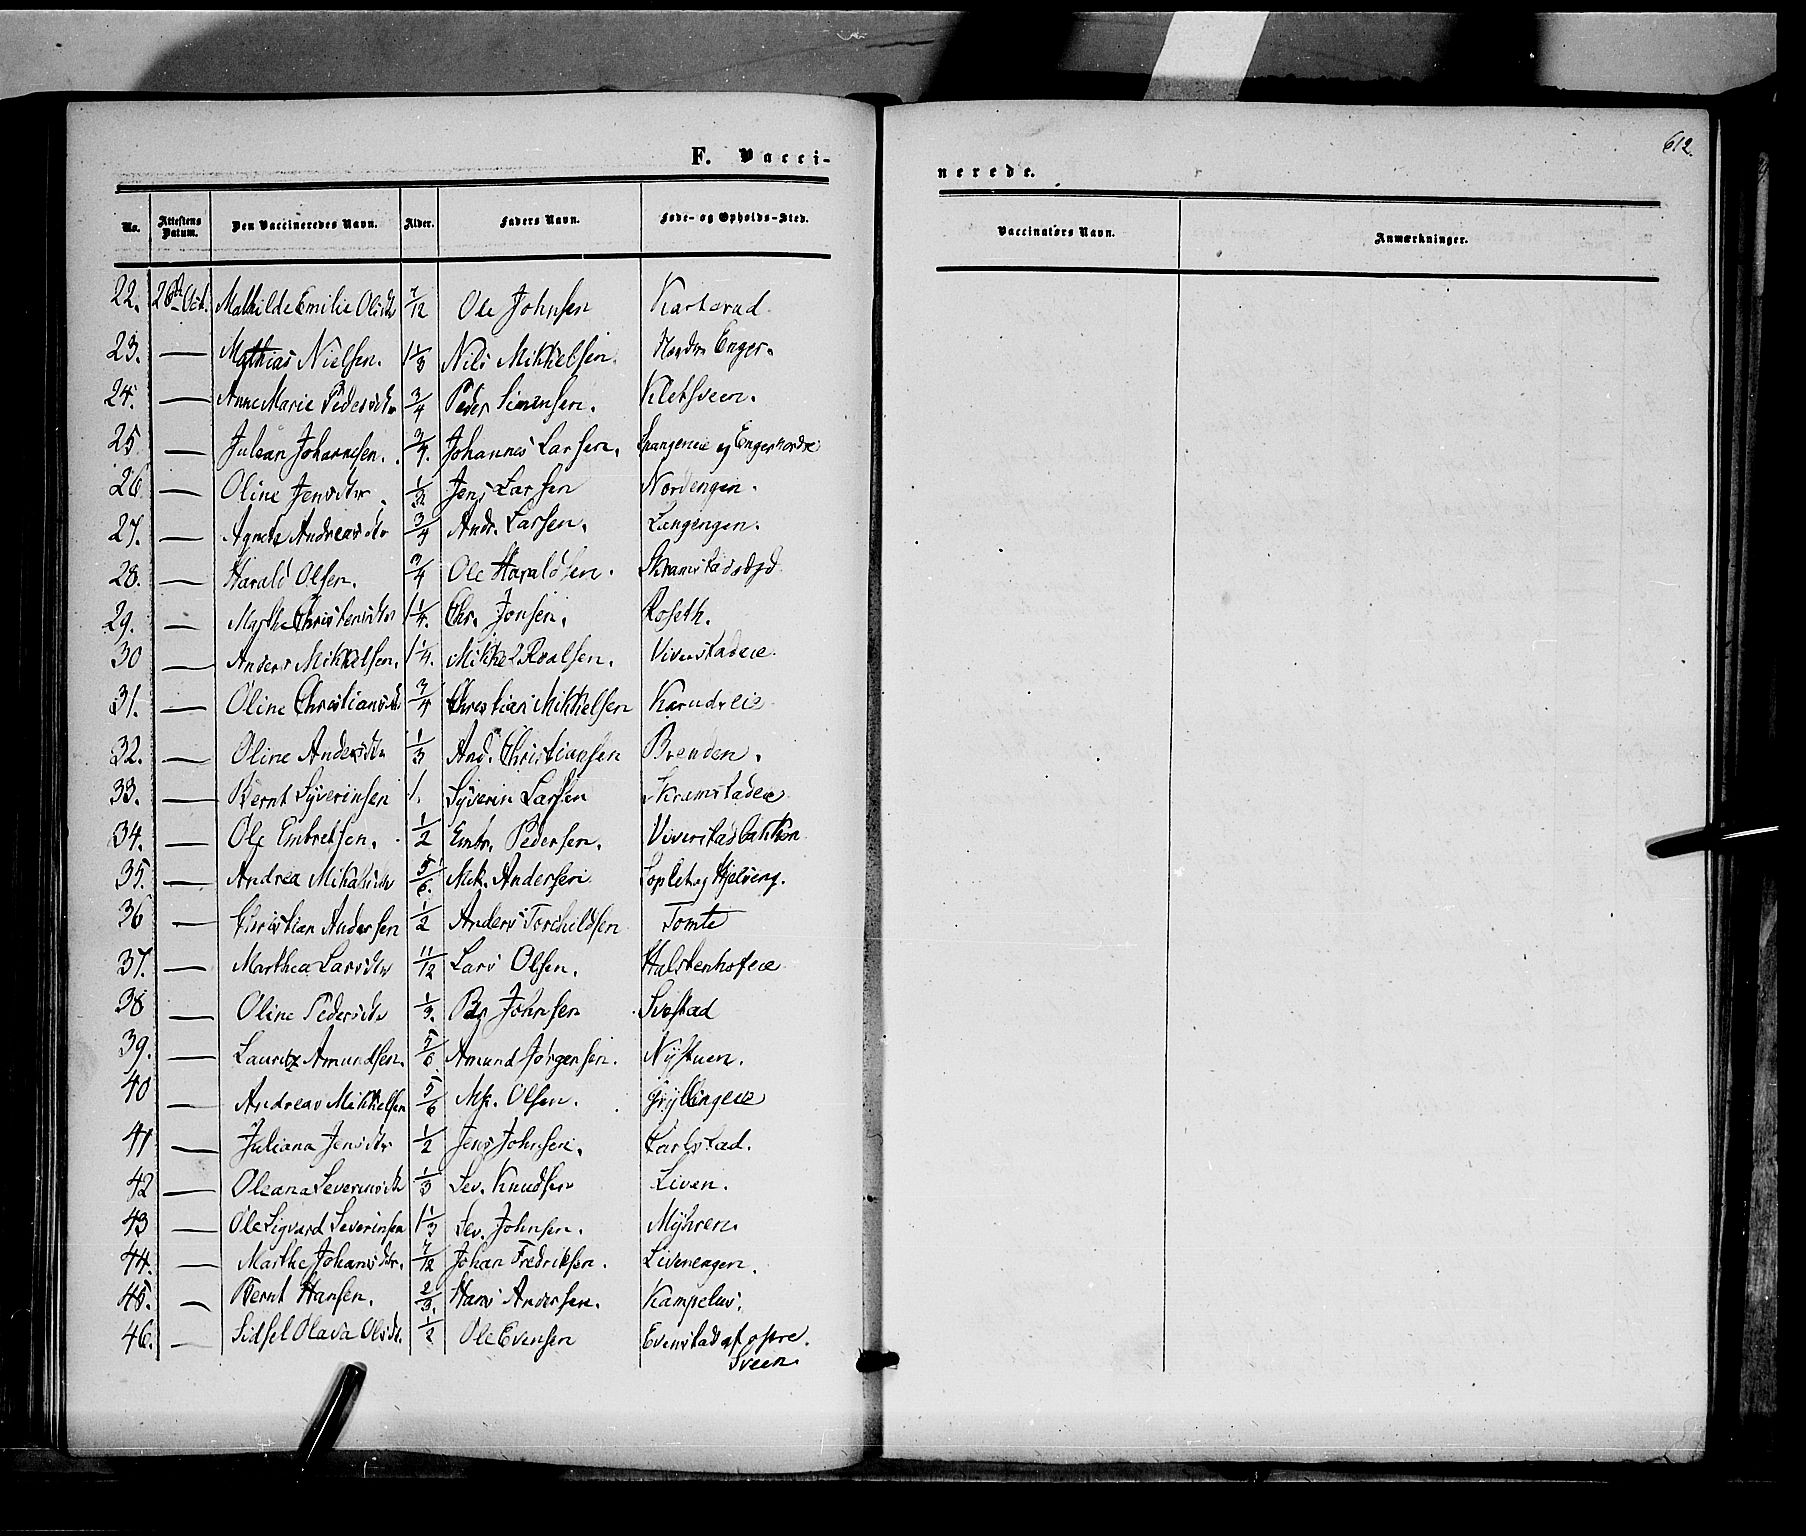 F. Vacci-
nerede.
612.
No. Attestens Datum. Den Vaccineredes Navn. Alder. Faders Navn. Føde- og Opholds-Sted. Vaccinatørs Navn. Anmærkninger.
22. Mathilde Emilie Olsdtr 7/12 Ole Johnsen
23. — Mathias Nielsen. 1 1/3 Nils Mikkelsen. Nordre Enger.
24. — Anne Marie Pedersdtr 3/4 Peder Simensen. Kletsveen.
25 — Julean Johannesen. 3/4. Johannes Larsen.
26 — Oline Jensdtr Jens Larsen Nordengen.
27. — Agnethe Andreasdtr 3/4 Andr. Larsen. Langengen.
28. — Harald Olsen. 3/4 Ole Haraldsen.
29. — Marthe Christensdtr 1 1/4. Chr. Jonsen. Roseth.
30 — Anders Mikkelsen. 1 1/4. Mikkel Roalsen. Viverstadeie
31. — Oline Christiansdtr 3/4 Christian Mikkelsen
32. — Oline Andersdtr 1/3 And. Christiansen Brenden.
33. — Bernt Syverinsen 1. Syverin Larsen Skramstadeie
34. — Ole Embretsen. 1/2 Embr. Pedersen. Viverstadbakken
35. — Andrea Mikkelsdtr 5/6. Mik. Andersen
36 — Christian Andersen 1/2 Anders Torchildsen Tomte
37. — Marthea Larsdtr 11/12 Lars Olsen. Hulstenhofeie
38 — Oline Pedersdtr 1/3. Johnsen Svestad
39. — Lauritz Amundsen. 5/6 Amund Jørgensen. Nystuen.
40 — Andreas Mikkelsen 5/6 Mk. Olsen. Gryllingeie
41 — Juliana Jensdtr 1/2 Jens Johnsen. Carlstad.
42 — Oleana Severinsdtr 1/3 Sev. Knudsen Liven.
43 — Ole Sigvard Severinsen 1 1/3 Sev. Johnsen. Myhren.
44. — Marthe Johansdtr. 7/12 Johan Fredriksen. Livenengen.
45. — Bernt Hansen. 2/3. Hans Andersen. Kampelus.
46. — Sidsel Olava Olsdtr. 1/2 Ole Evensen Evenstad af øfre
Sveen.